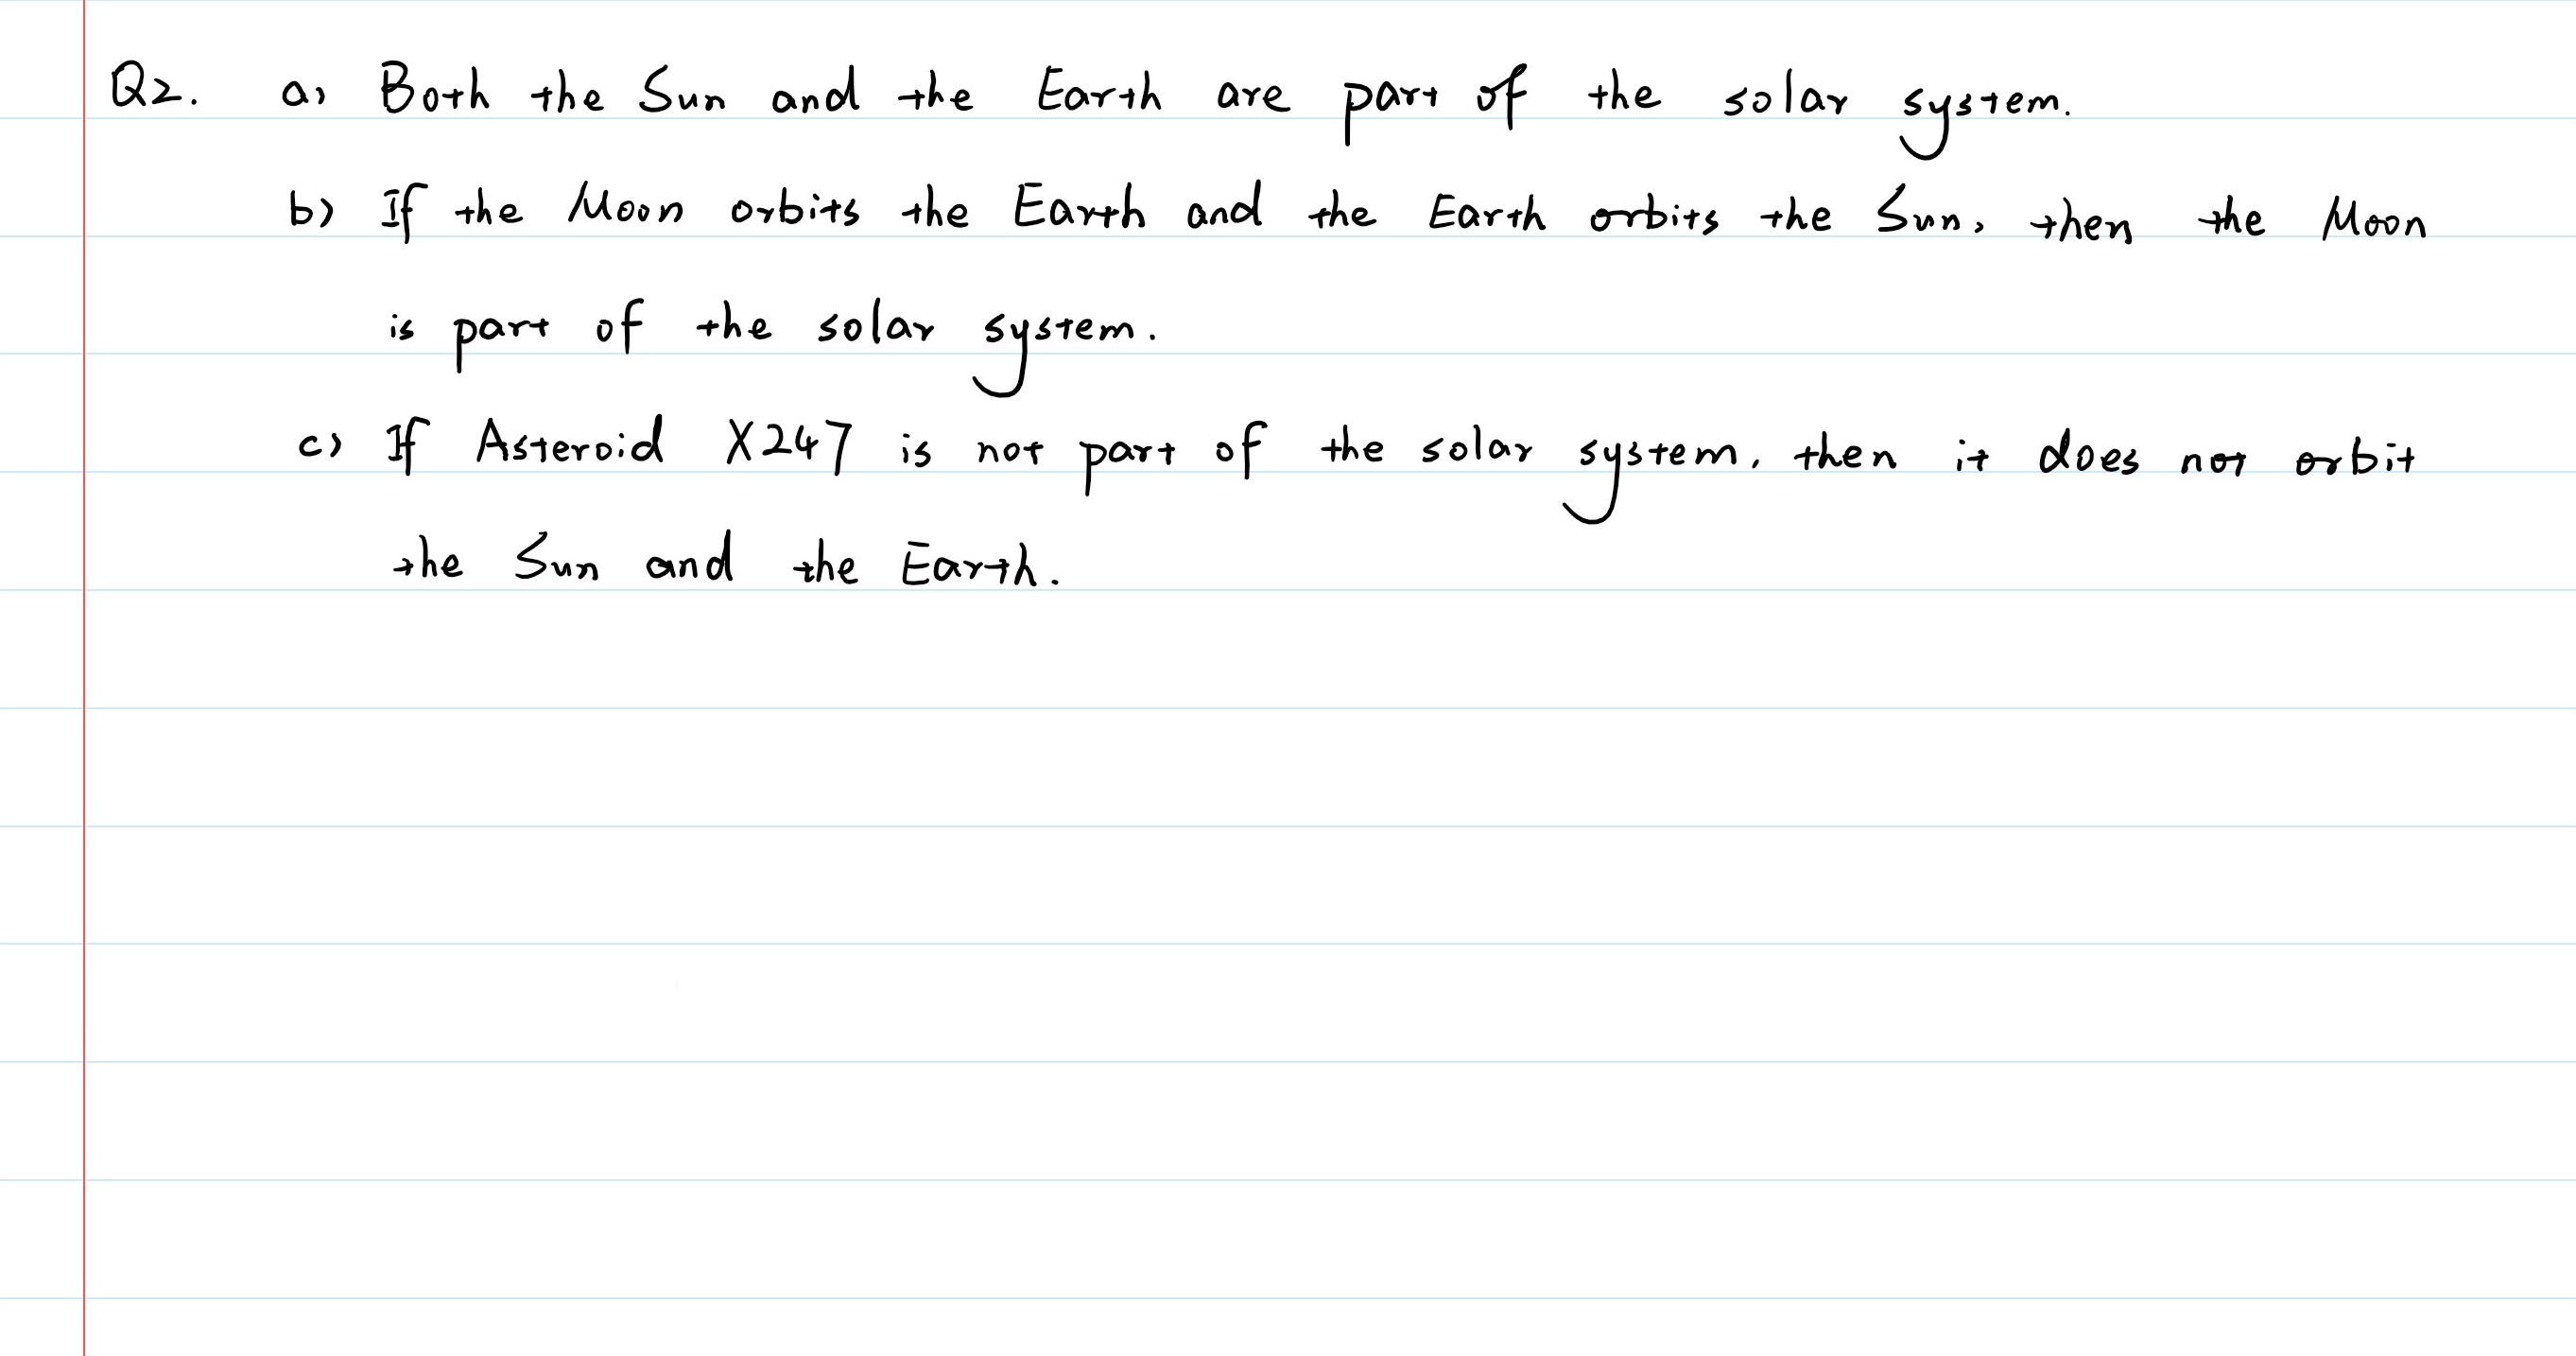 Q2. a) Both the Sun and the Earth are part of the solar system.
b) If the Moon orbits the Earth and the Earth orbits the Sun, then the Moon
is part of the solar system.
c) If Asteroid X247 is not part of the solar system, then it does not orbit
the Sun and the Earth.